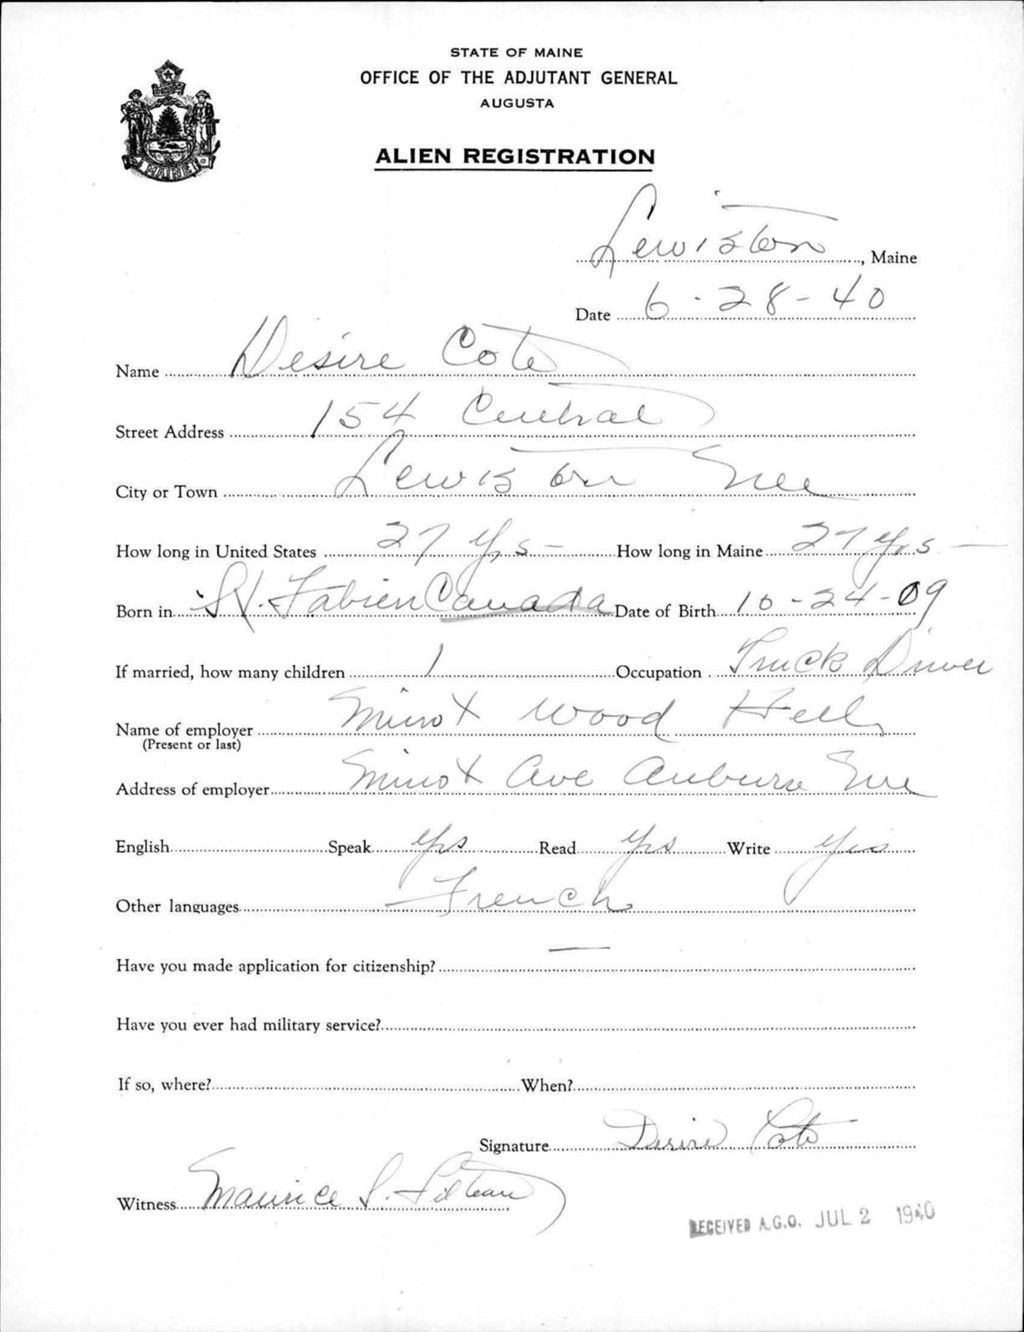 STATE OF MAINE
OFFICE OF THE ADJUTANT GENERAL
AUGUSTA
ALIEN REGISTRATION
MAINE
Lewiston, Maine
Date 6-28-40
Name Desire Cote
Street Address 154 Central
City or Town Lewiston Me
How long in United States 27 yrs - How long in Maine 27 yrs -
Born in St. Fabien Canada Date of Birth 10-24-09
If married, how many children 1 Occupation Truck Driver
Name of employer Minot Wood
(Present or last)
Address of employer Minot Ave Auburn Me
English Speak yes Read yes Write yes
Other languages French
Have you made application for citizenship? —
Have you ever had military service?
If so, where? When?
Signature Desire Cote
Witness Maurice
RECEIVED A.G.O. JUL 2 1940